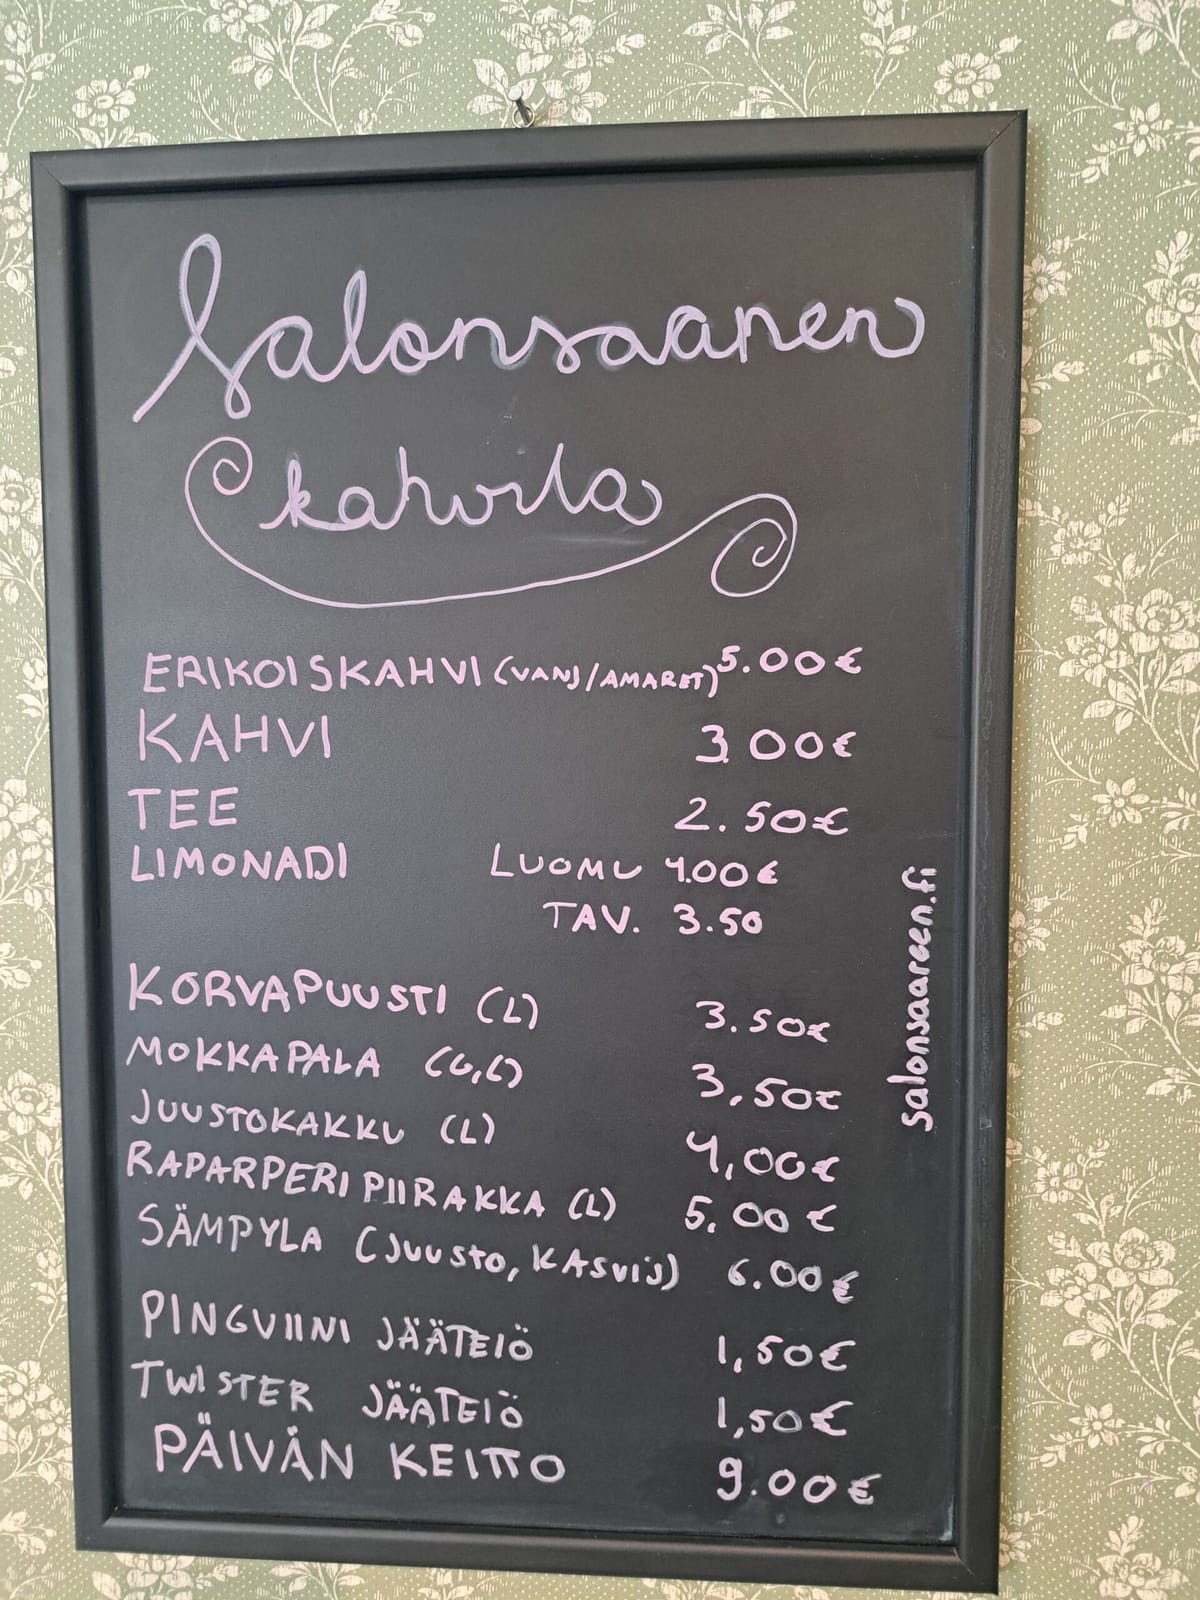 Salonsaanen
kahvila
ERIKOISKAHVI (VANJ/AMARET) 5.00€
KAHVI 3.00€
TEE 2.50€
LIMONADI LUOMU 4.00€
TAV. 3.50
KORVAPUUSTI (L) 3.50€
MOKKAPALA (G,L) 3,50€
JUUSTOKAKKU (L) 4,00€
RAPARPERI PIIRAKKA (L) 5.00€
SÄMPYLA (JUUSTO, KASVIS) 6.00€
PINGVIINI JÄÄTELÖ 1,50€
TWISTER JÄÄTELÖ 1,50€
PÄIVÄN KEITTO 9.00€
salonsaareen.fi